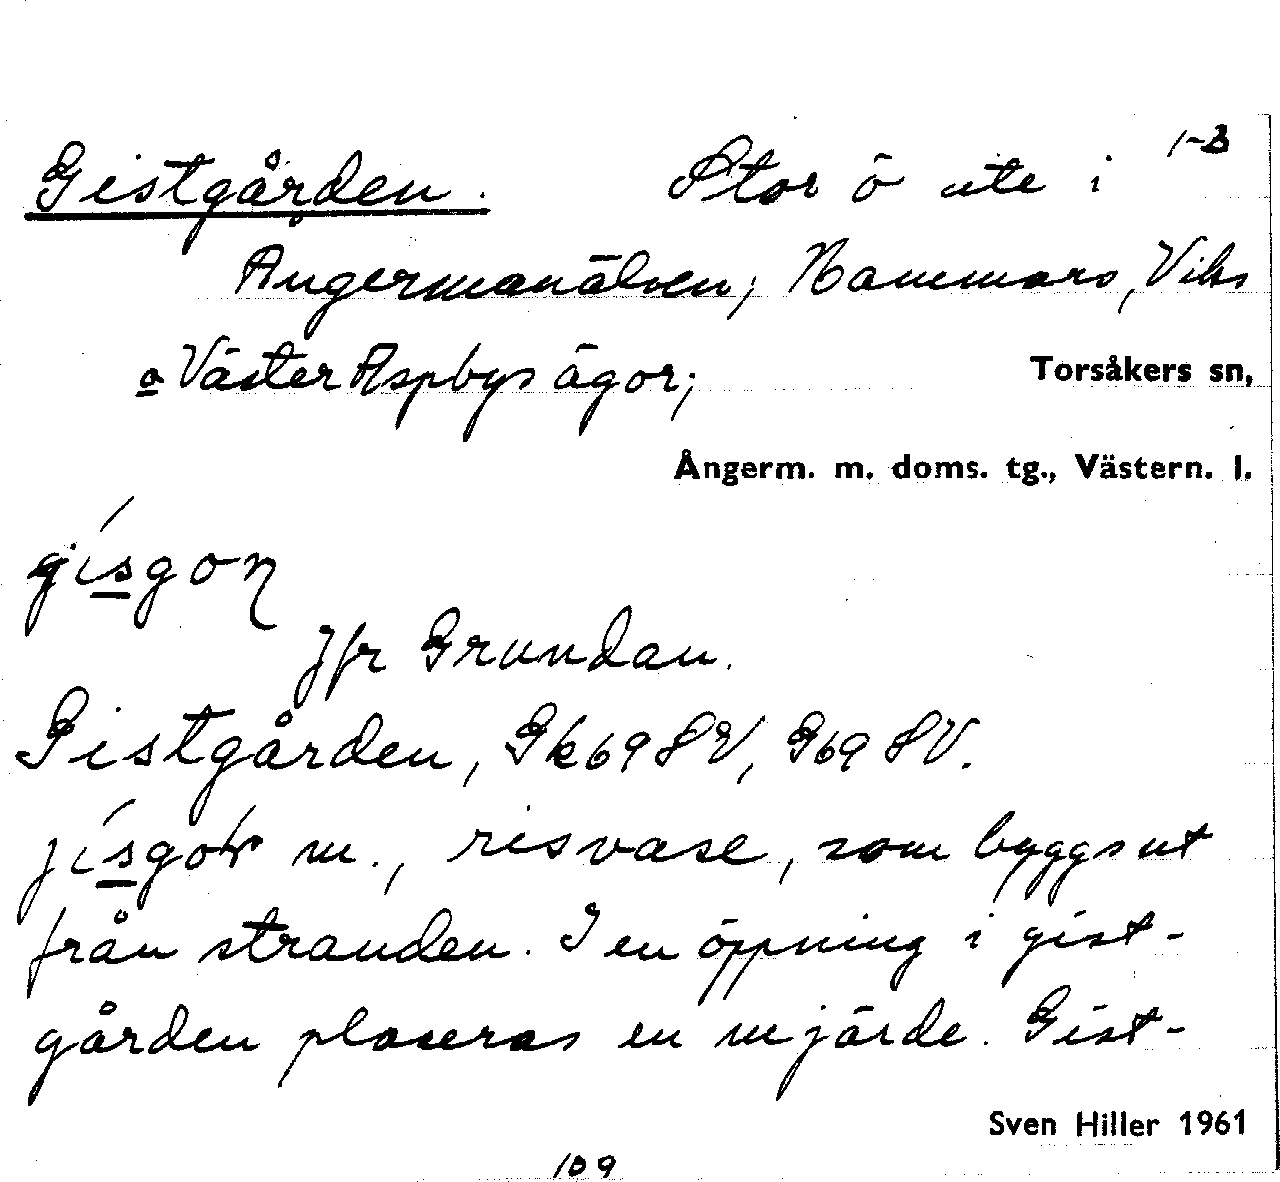 1-3
Gistgården. Stor ö ute i
Ångermanälven; Hammars, Viks
o Väster Aspbys ägor;
Torsåkers sn,
Ångerm. m. doms. tg., Västern. l.
Jfr Grundan.
Gistgården, Gk69SV, G69SV.
m., risvase, som byggs ut
från stranden. I en öppning i gist-
gården placeras en mjärde. Gist-
Sven Hiller 1961
109